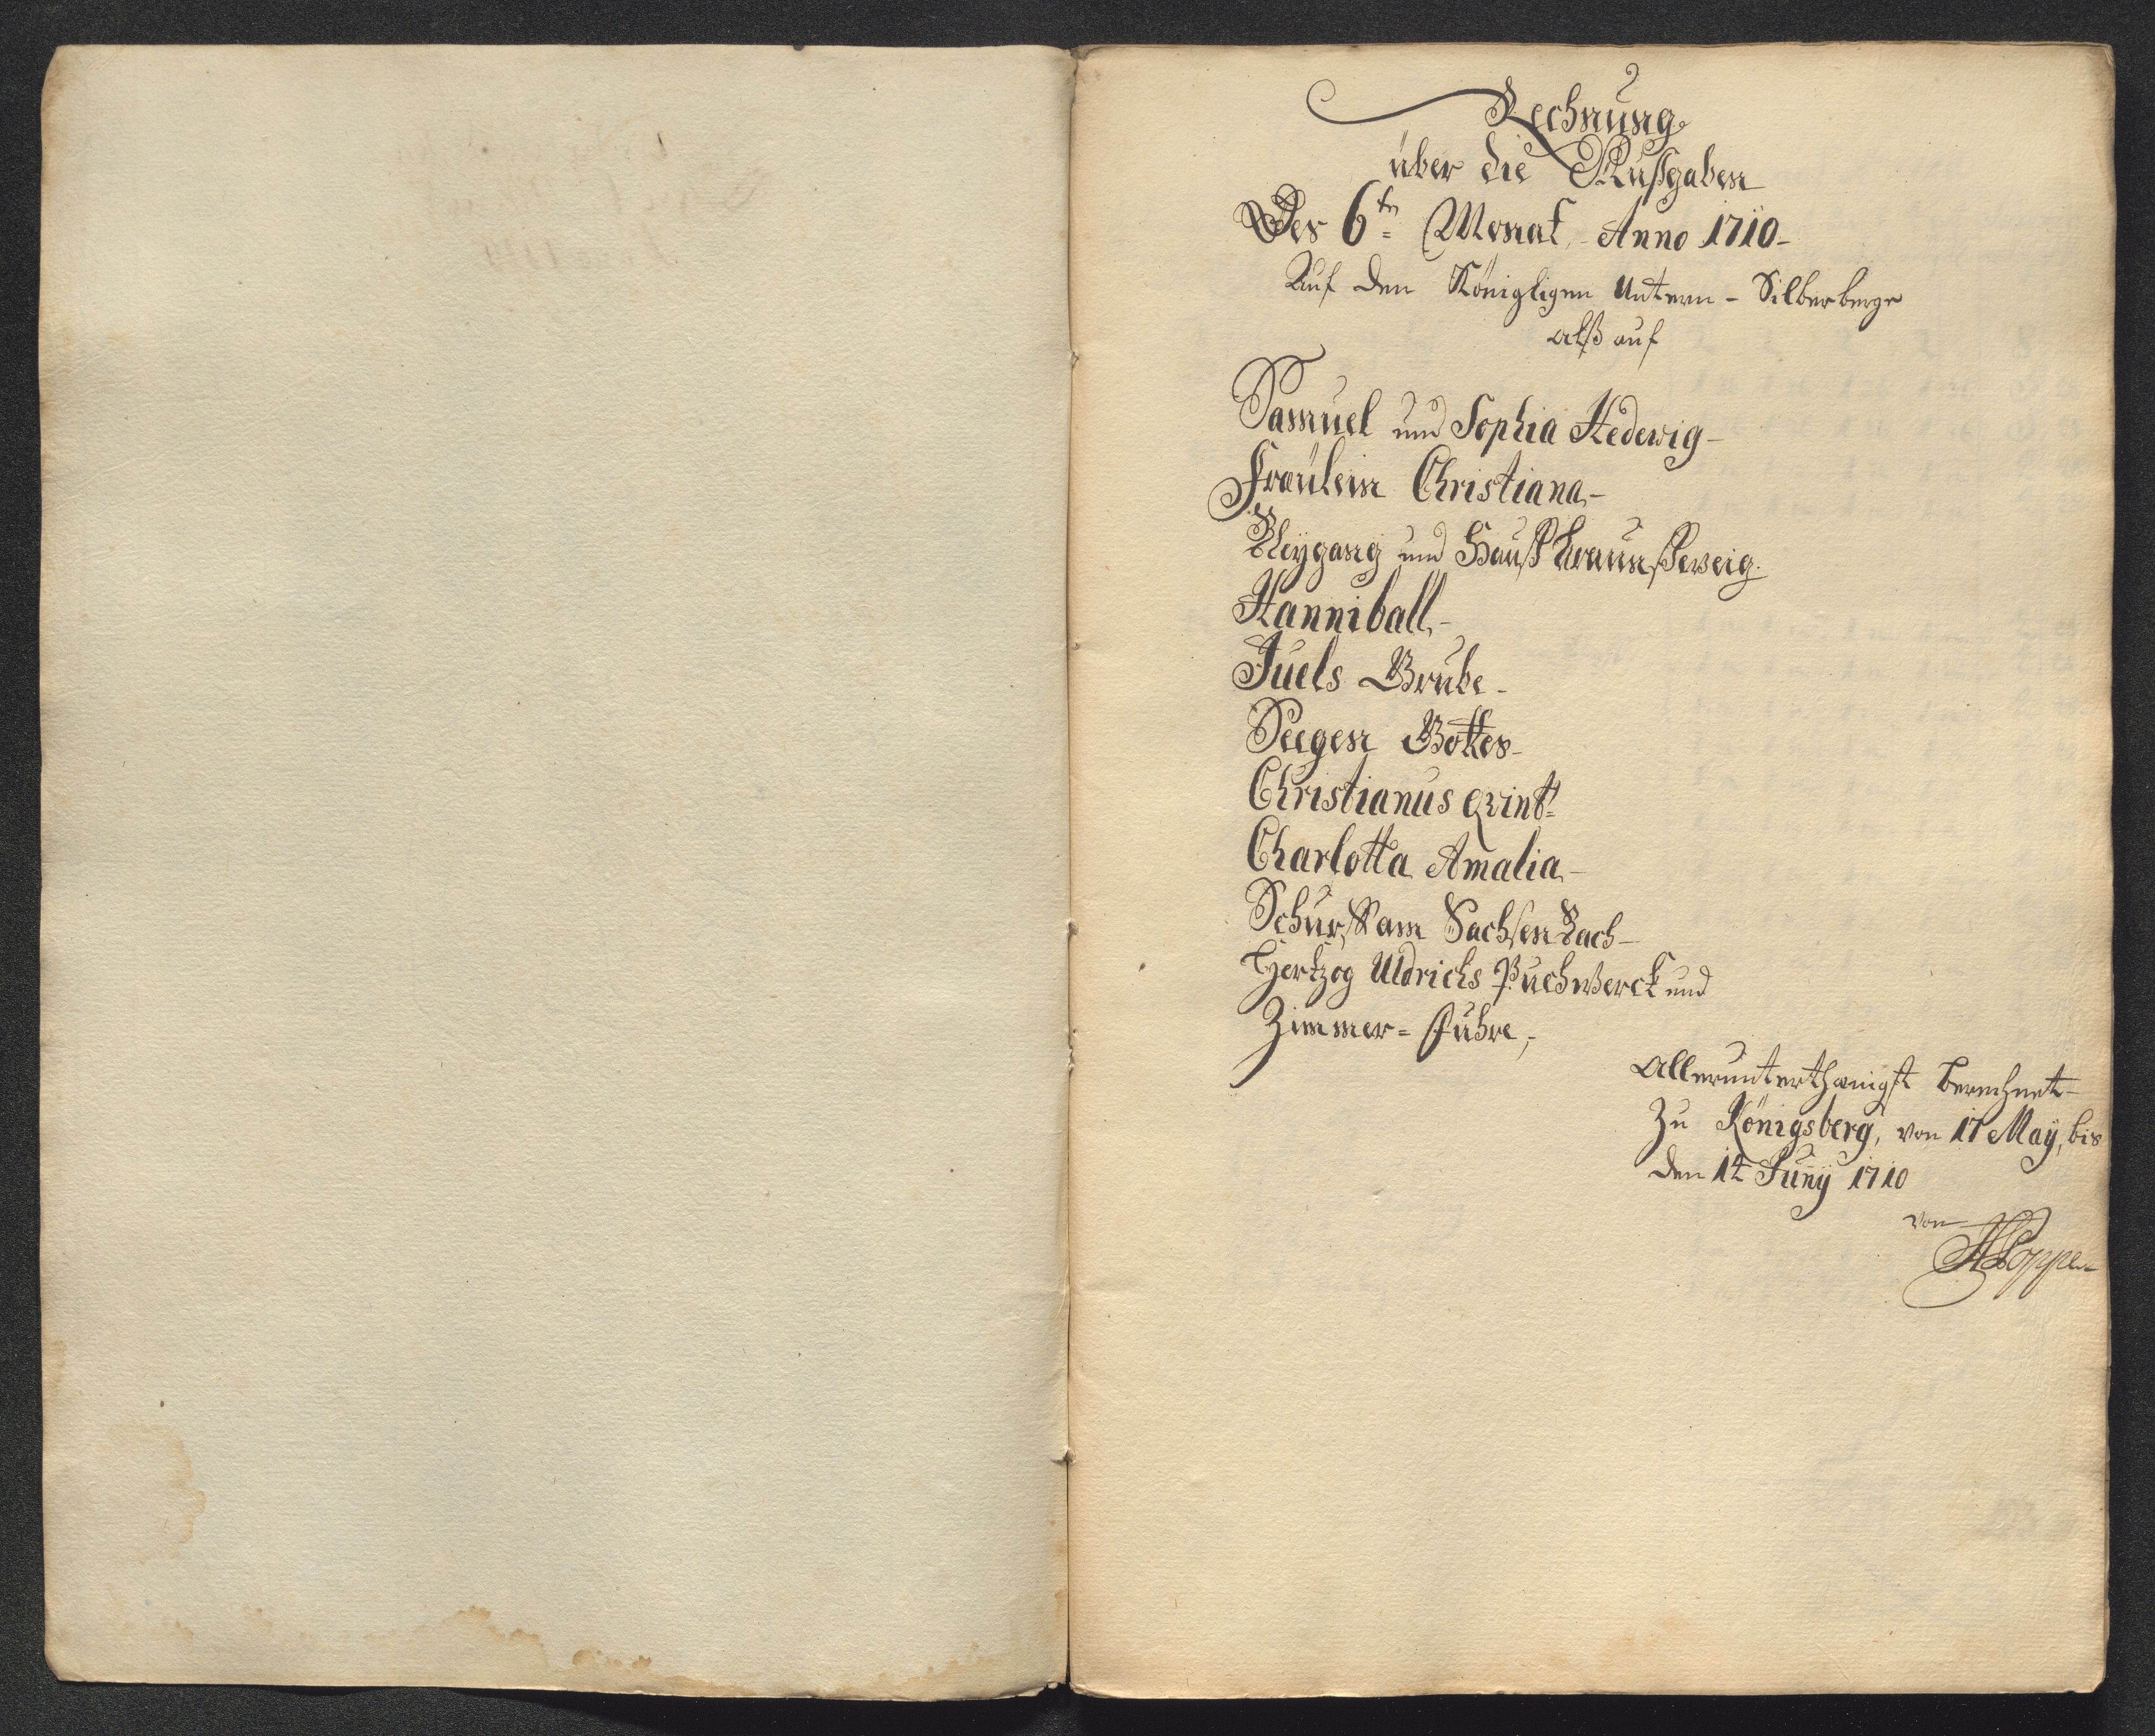 Rechnung
über die Außgaben
Des 6tn Monat, Anno 1710-
Auf den Königligen Untern-Silberberge
alß auf
Samuel und Sophia Hedewig-
Fräulein Christiana-
Bleygang und Hauß Braunßweig.
Hanniball,-
Juels Grube-
Seegen Gottes-
Christianus Qvint:
Charlotta Amalia-
Schurff am Sachsen Bach-
Hertzog Uldrichs Puchwerck und
Zimmer-Fuhre,-
Allerunterthänigst berechnet-
Zu Königsberg, von 17 May, bis
den 14 Junÿ 1710
von
HPoppe